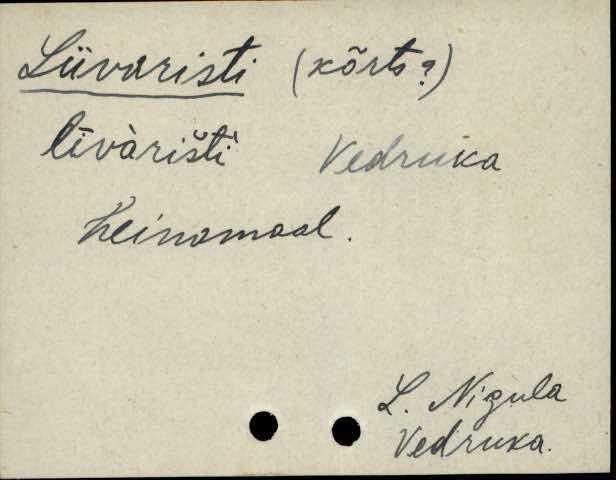 Liivaristi (kõrts?)
līvàrišti Vedruka
Heinamaal.
L. Nigula
Vedruka.